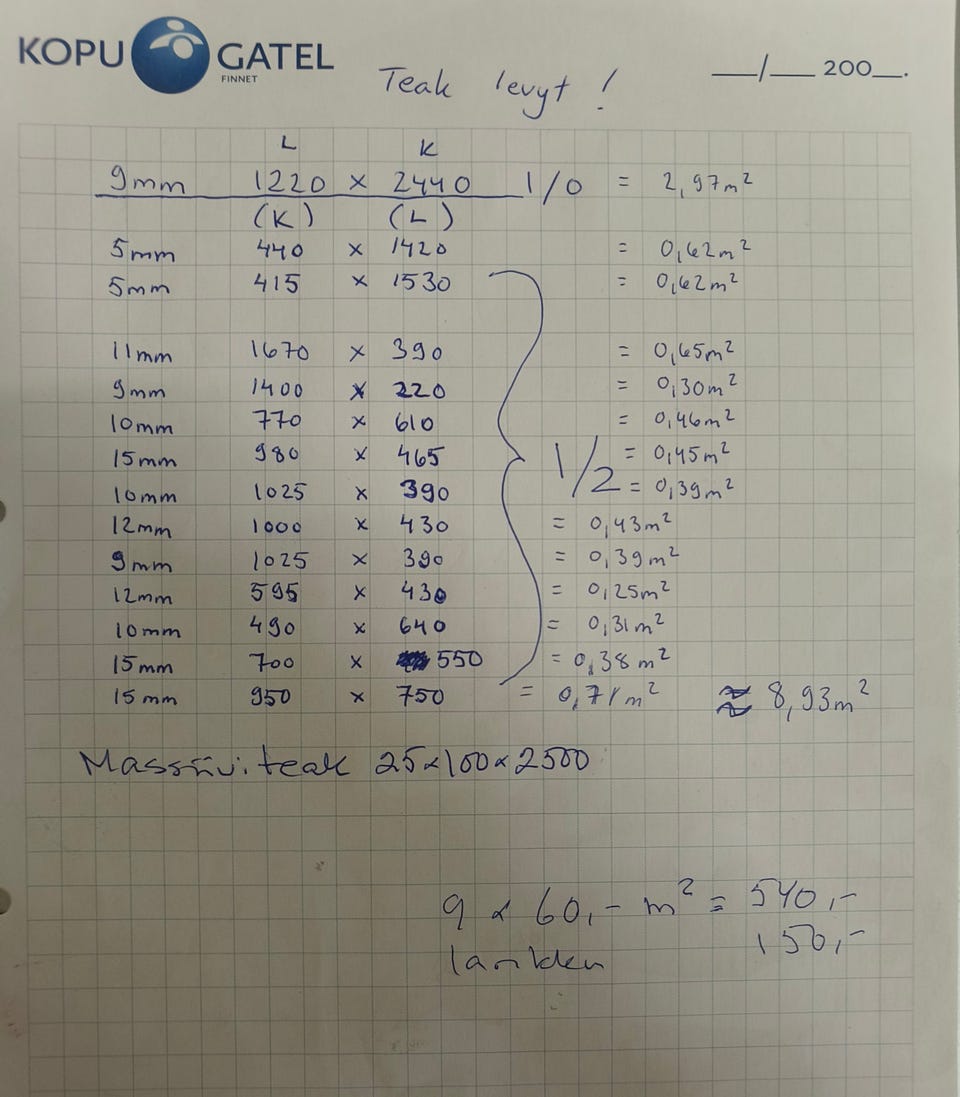 KOPU GATEL
FINNET
Teak levyt !
__/__ 200__.
L K
9mm 1220 x 2440 1/0 = 2,97m²
(K) (L)
5mm 440 x 1420 = 0,62m²
5mm 415 x 1530 = 0,62m²
11mm 1670 x 390 = 0,65m²
9mm 1400 x 220 = 0,30m²
10mm 770 x 610 = 0,46m²
15mm 980 x 465 = 0,45m²
1/2
10mm 1025 x 390 = 0,39m²
12mm 1000 x 430 = 0,43m²
9mm 1025 x 390 = 0,39m²
12mm 595 x 430 = 0,25m²
10mm 490 x 640 = 0,31m²
15mm 700 x 550 = 0,38m²
15mm 950 x 750 = 0,71m² ≈ 8,93m²
Massiivi teak 25x100x2500
9 x 60,- m² = 540,-
150,-